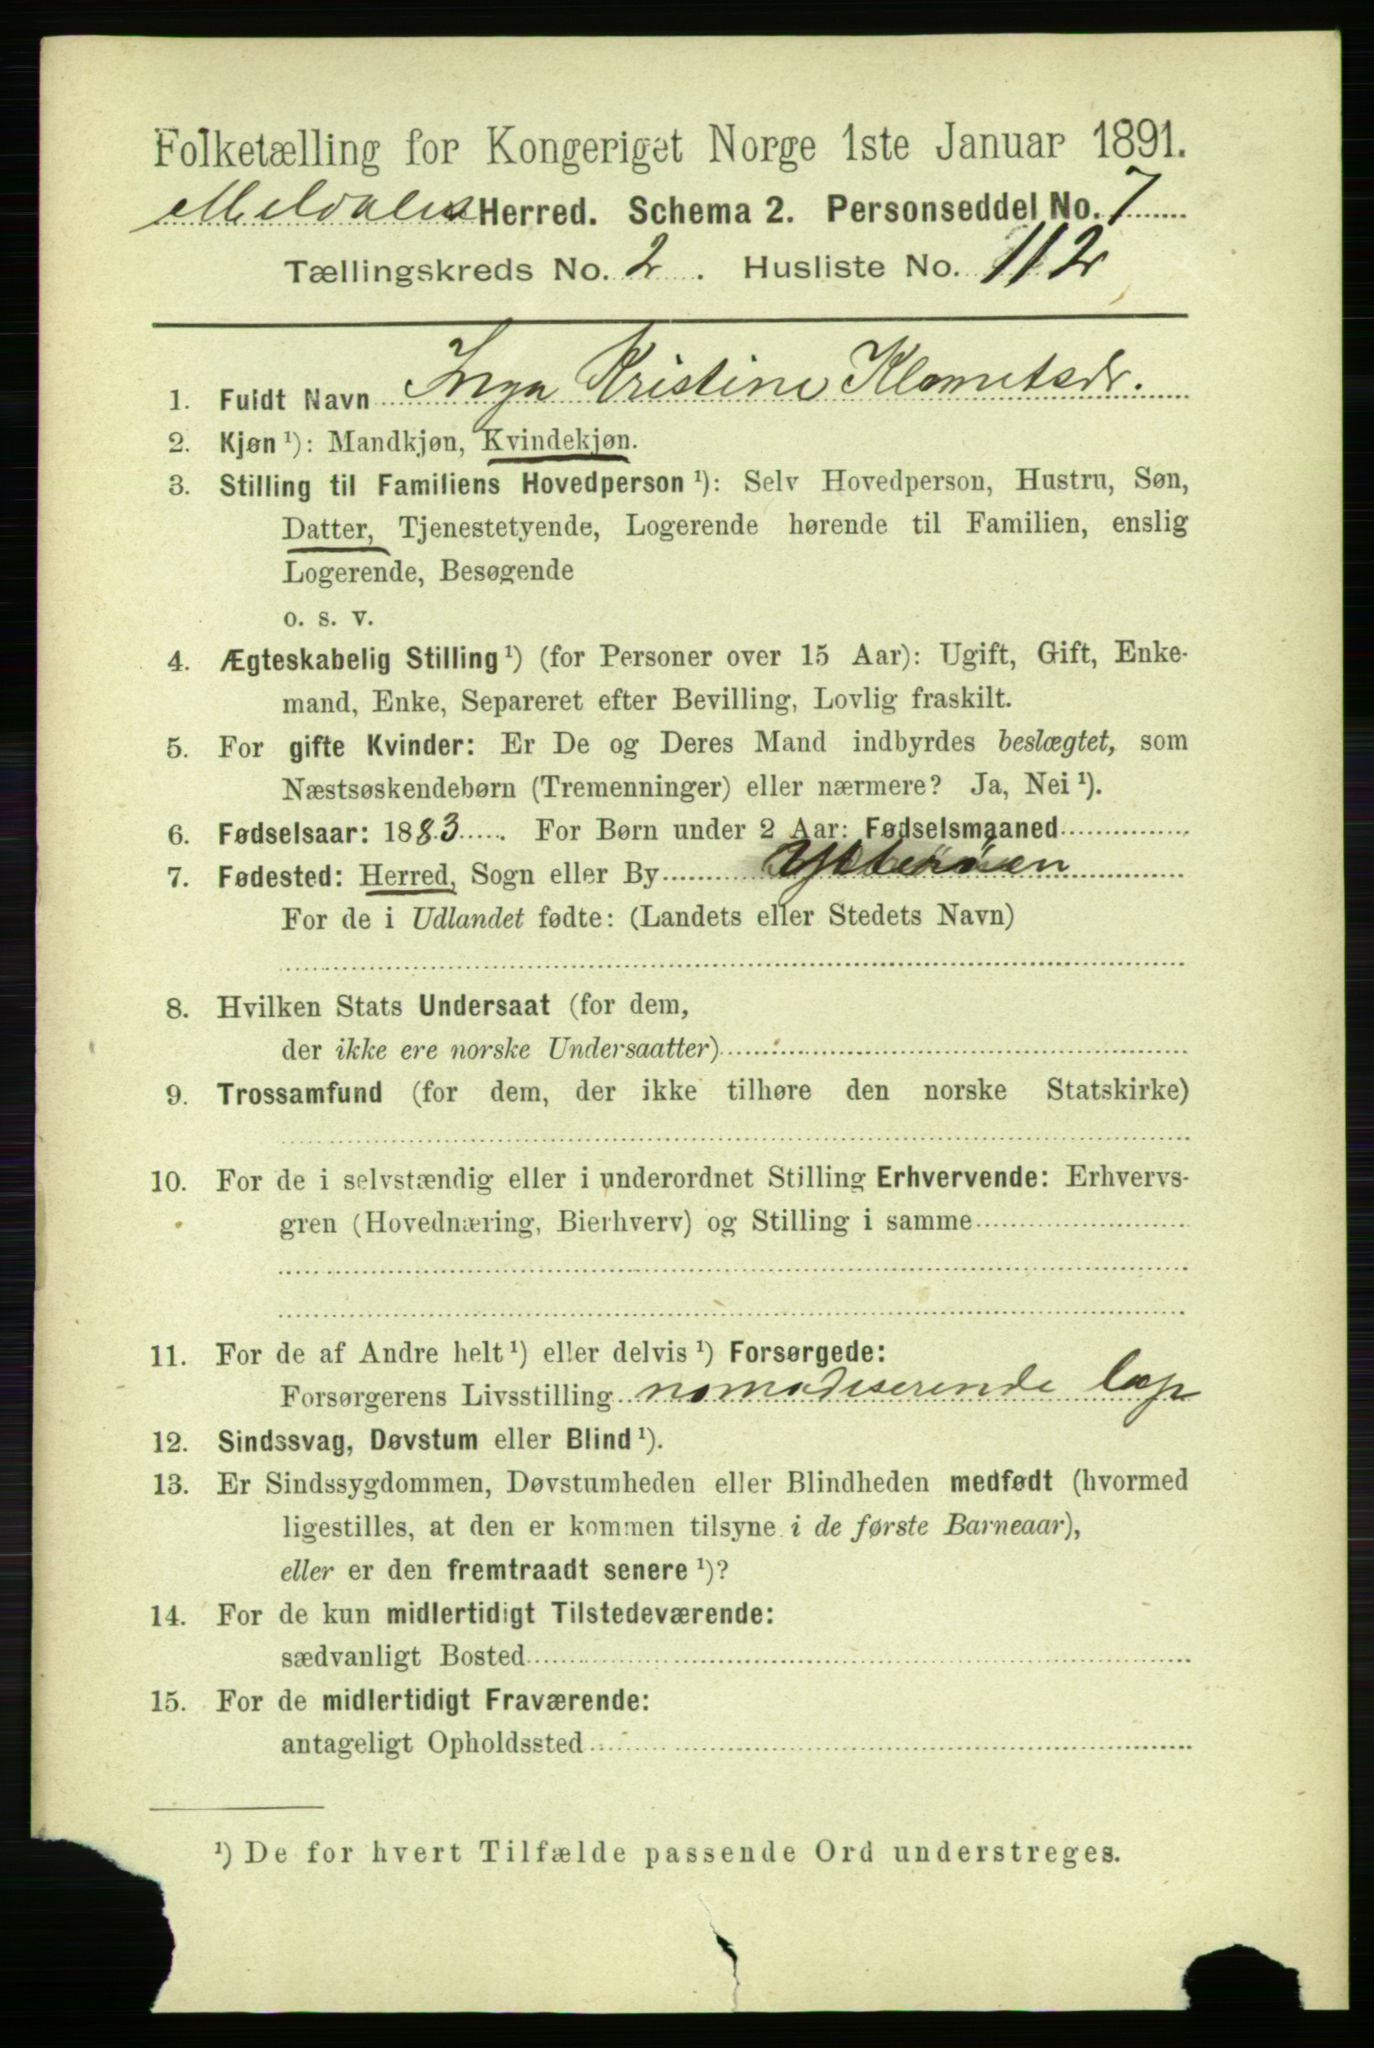 Folketælling for Kongeriget Norge 1ste Januar 1891.
Meldalens Herred. Schema 2. Personseddel No. 7
Tællingskreds No. 2. Husliste No. 112
1. Fuldt Navn Inga Kristine Klemetsdr.
2. Kjøn ¹): Mandkjøn, Kvindekjøn.
3. Stilling til Familiens Hovedperson ¹): Selv Hovedperson, Hustru, Søn,
Datter, Tjenestetyende, Logerende hørende til Familien, enslig
Logerende, Besøgende
o. s. v.
4. Ægteskabelig Stilling ¹) (for Personer over 15 Aar): Ugift, Gift, Enke-
mand, Enke, Separeret efter Bevilling, Lovlig fraskilt.
5. For gifte Kvinder: Er De og Deres Mand indbyrdes beslægtet, som
Næstsøskendebørn (Tremenninger) eller nærmere? Ja, Nei ¹).
6. Fødselsaar: 1883. For Børn under 2 Aar: Fødselsmaaned
7. Fødested: Herred, Sogn eller By Ytterøen
For de i Udlandet fødte: (Landets eller Stedets Navn)
8. Hvilken Stats Undersaat (for dem,
der ikke ere norske Undersaatter)
9. Trossamfund (for dem, der ikke tilhøre den norske Statskirke)
10. For de i selvstændig eller i underordnet Stilling Erhvervende: Erhvervs-
gren (Hovednæring, Bierhverv) og Stilling i samme
11. For de af Andre helt ¹) eller delvis ¹) Forsørgede:
Forsørgerens Livsstilling nomadiserende lap
12. Sindssvag, Døvstum eller Blind ¹).
13. Er Sindssygdommen, Døvstumheden eller Blindheden medfødt (hvormed
ligestilles, at den er kommen tilsyne i de første Barneaar),
eller er den fremtraadt senere ¹)?
14. For de kun midlertidigt Tilstedeværende:
sædvanligt Bosted
15. For de midlertidigt Fraværende:
antageligt Opholdssted
¹) De for hvert Tilfælde passende Ord understreges.